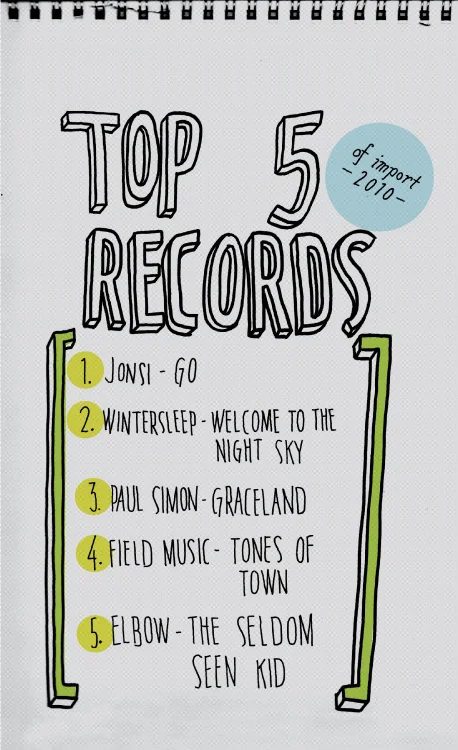 TOP 5
of import
-2010-
RECORDS
1. JONSI - GO
2. WINTERSLEEP - WELCOME TO THE
NIGHT SKY
3. PAUL SIMON - GRACELAND
4. FIELD MUSIC - TONES OF
TOWN
5. ELBOW - THE SELDOM
SEEN KID